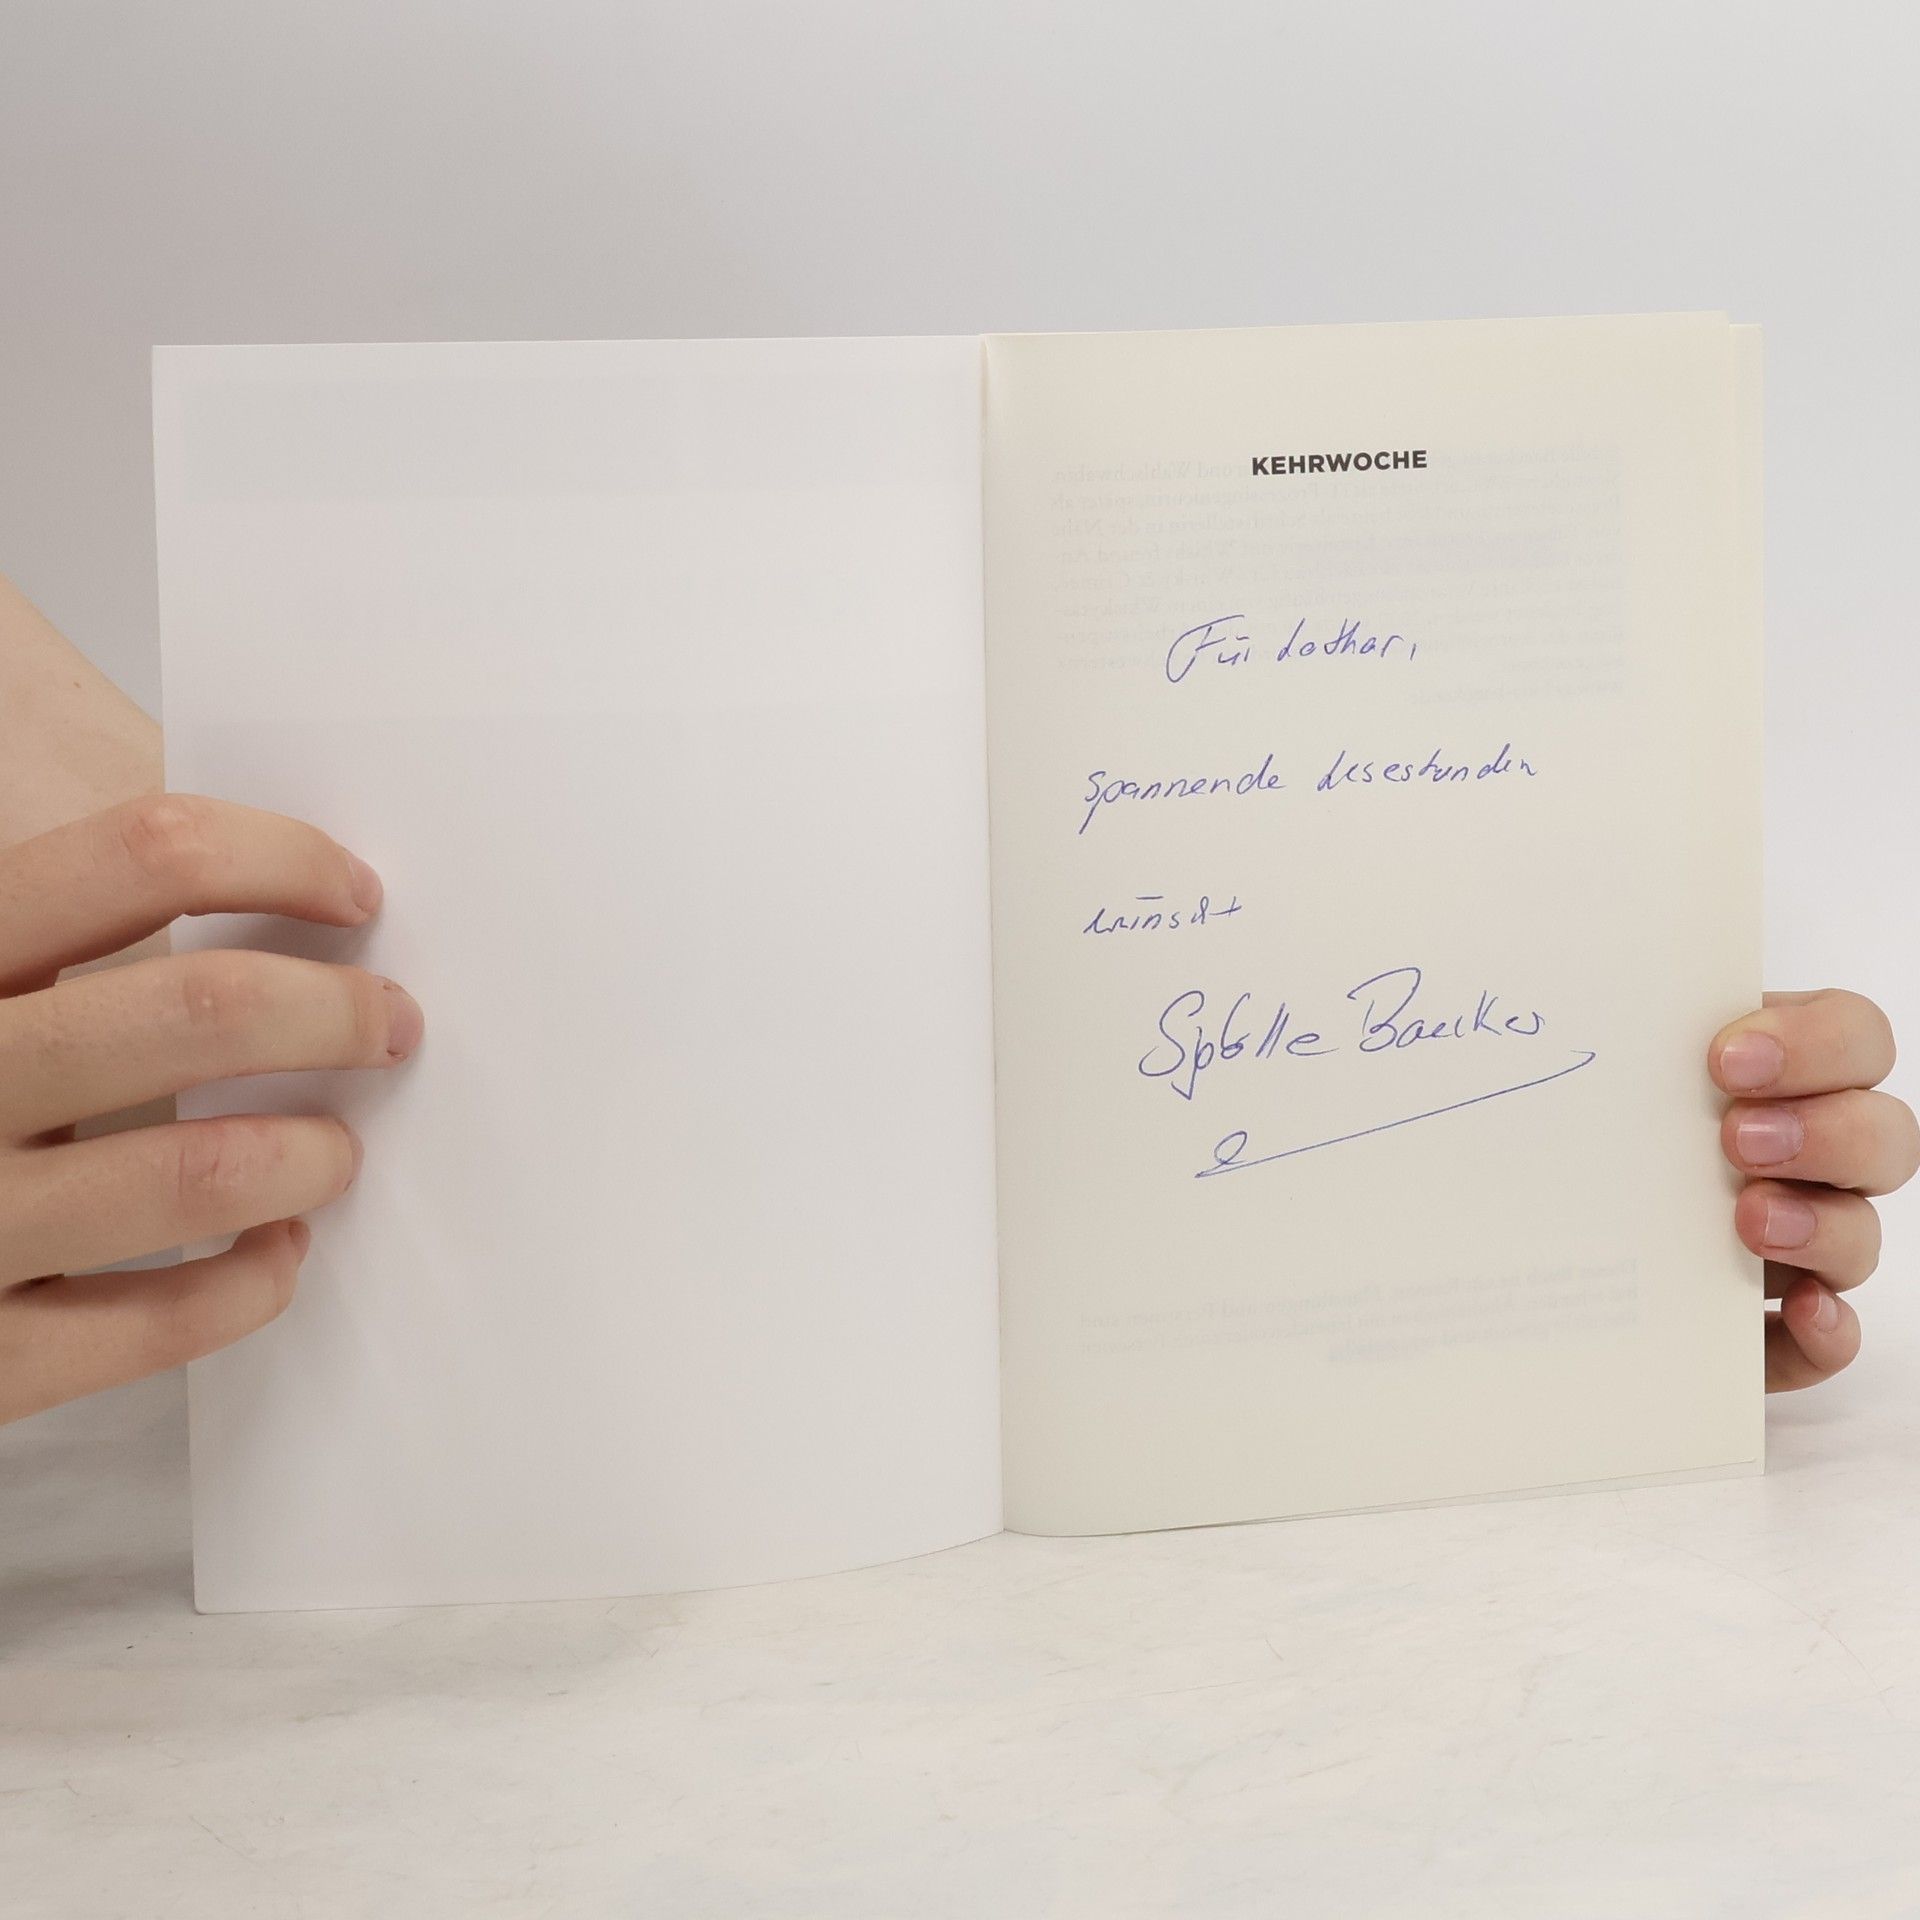 KEHRWOCHE
Für Lothar,
spannende Lesestunden
wünscht
Sybille Baecker